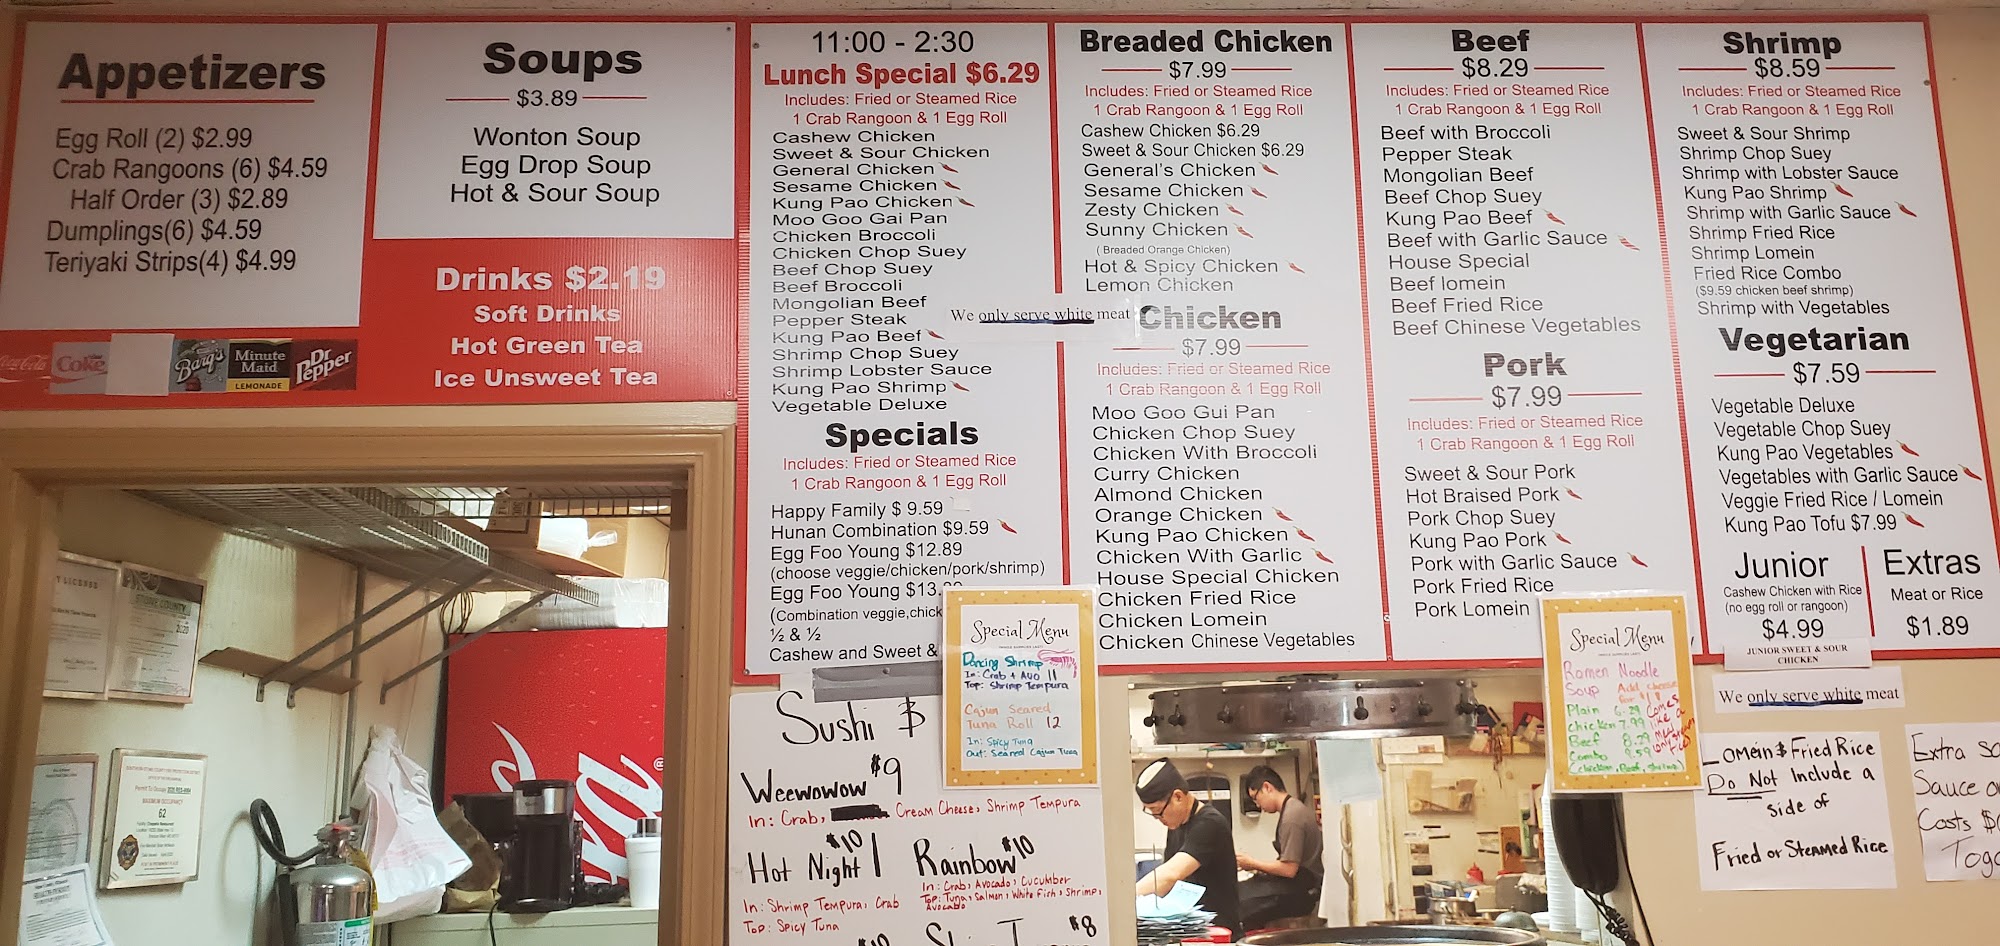 Appetizers
Egg Roll (2) $2.99
Crab Rangoons (6) $4.59
Half Order (3) $2.89
Dumplings(6) $4.59
Teriyaki Strips(4) $4.99
Coca-Cola
Coke
Barq's
Minute Maid
LEMONADE
Dr Pepper
Soups
$3.89
Wonton Soup
Egg Drop Soup
Hot & Sour Soup
Drinks $2.19
Soft Drinks
Hot Green Tea
Ice Unsweet Tea
11:00 - 2:30
Lunch Special $6.29
Includes: Fried or Steamed Rice
1 Crab Rangoon & 1 Egg Roll
Cashew Chicken
Sweet & Sour Chicken
General Chicken
Sesame Chicken
Kung Pao Chicken
Moo Goo Gai Pan
Chicken Broccoli
Chicken Chop Suey
Beef Chop Suey
Beef Broccoli
Mongolian Beef
Pepper Steak
Kung Pao Beef
Shrimp Chop Suey
Shrimp Lobster Sauce
Kung Pao Shrimp
Vegetable Deluxe
We only serve white meat
Specials
Includes: Fried or Steamed Rice
1 Crab Rangoon & 1 Egg Roll
Happy Family $ 9.59
Hunan Combination $9.59
Egg Foo Young $12.89
(choose veggie/chicken/pork/shrimp)
Egg Foo Young $13.
(Combination veggie,chick
½ & ½
Cashew and Sweet &
Breaded Chicken
$7.99
Includes: Fried or Steamed Rice
1 Crab Rangoon & 1 Egg Roll
Cashew Chicken $6.29
Sweet & Sour Chicken $6.29
General's Chicken
Sesame Chicken
Zesty Chicken
Sunny Chicken
(Breaded Orange Chicken)
Hot & Spicy Chicken
Lemon Chicken
Chicken
$7.99
Includes: Fried or Steamed Rice
1 Crab Rangoon & 1 Egg Roll
Moo Goo Gui Pan
Chicken Chop Suey
Chicken With Broccoli
Curry Chicken
Almond Chicken
Orange Chicken
Kung Pao Chicken
Chicken With Garlic
House Special Chicken
Chicken Fried Rice
Chicken Lomein
Chicken Chinese Vegetables
Beef
$8.29
Includes: Fried or Steamed Rice
1 Crab Rangoon & 1 Egg Roll
Beef with Broccoli
Pepper Steak
Mongolian Beef
Beef Chop Suey
Kung Pao Beef
Beef with Garlic Sauce
House Special
Beef lomein
Beef Fried Rice
Beef Chinese Vegetables
Pork
$7.99
Includes: Fried or Steamed Rice
1 Crab Rangoon & 1 Egg Roll
Sweet & Sour Pork
Hot Braised Pork
Pork Chop Suey
Kung Pao Pork
Pork with Garlic Sauce
Pork Fried Rice
Pork Lomein
Shrimp
$8.59
Includes: Fried or Steamed Rice
1 Crab Rangoon & 1 Egg Roll
Sweet & Sour Shrimp
Shrimp Chop Suey
Shrimp with Lobster Sauce
Kung Pao Shrimp
Shrimp with Garlic Sauce
Shrimp Fried Rice
Shrimp Lomein
Fried Rice Combo
($9.59 chicken beef shrimp)
Shrimp with Vegetables
Vegetarian
$7.59
Vegetable Deluxe
Vegetable Chop Suey
Kung Pao Vegetables
Vegetables with Garlic Sauce
Veggie Fried Rice / Lomein
Kung Pao Tofu $7.99
Junior
Cashew Chicken with Rice
(no egg roll or rangoon)
$4.99
JUNIOR SWEET & SOUR
CHICKEN
Extras
Meat or Rice
$1.89
We only serve white meat
Special Menu
Dancing Shrimp
In: Crab + Avo 11
Top: Shrimp Tempura
Cajun Seared
Tuna Roll 12
In: Spicy Tuna
Out: Seared Cajun Tuna
Special Menu
Ramen Noodle
Soup
Add cheese
for $1!
Plain 6.29
Chicken 7.99
Beef 8.29
Combo 8.59
(Chicken, Beef, Shrimp)
Sushi
Weewowow $9
In: Crab, Cream Cheese, Shrimp Tempura
Hot Night $10
In: Shrimp Tempura, Crab
Top: Spicy Tuna
Rainbow $10
In: Crab, Avocado, Cucumber
Top: Tuna, Salmon, White Fish, Shrimp,
Avocado
$8
Lomein & Fried Rice
Do Not Include a
side of
Fried or Steamed Rice
Extra
Sauce
Costs
62